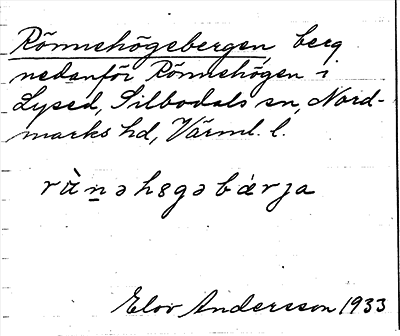 Rönnehögebergen, berg
nedanför Rönnehögen i
Lysed, Silbodals sn, Nord-
marks hd, Värml. l.
rù̀n̠əhɞgəbǽrja
Elov Andersson 1933